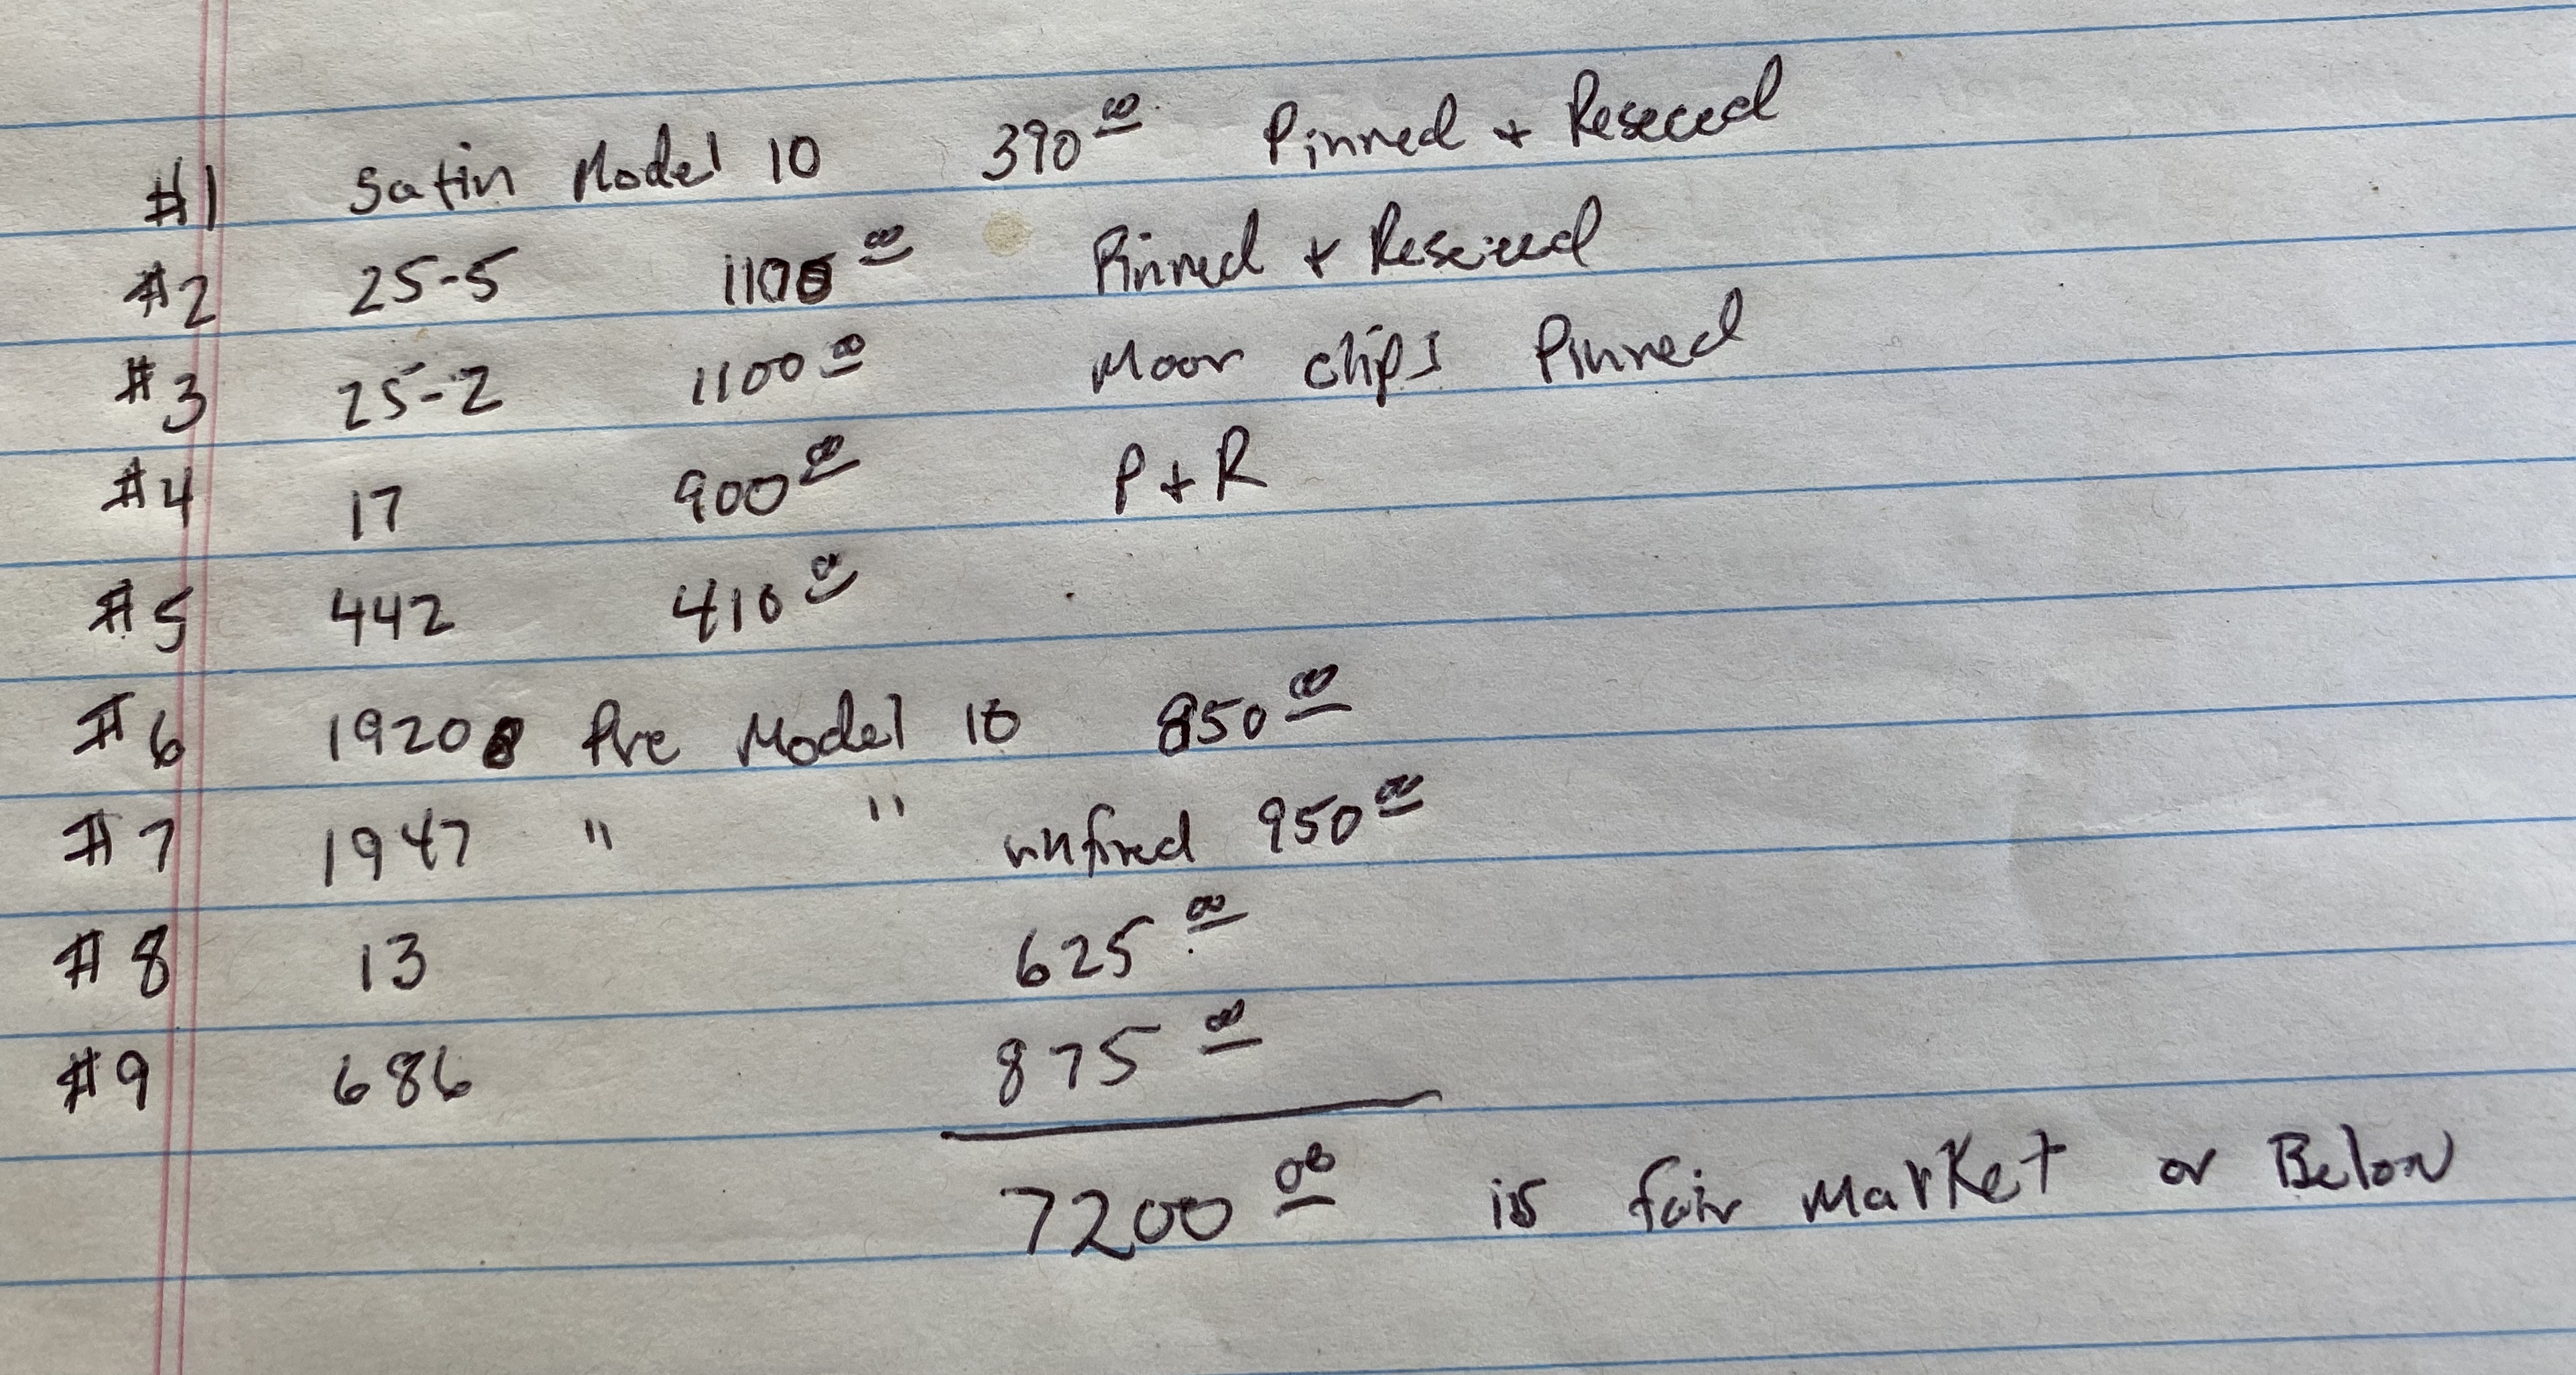 #1 Satin Model 10 390 00 Pinned + Reseced
#2 25-5 1100 00 Pinned + Reseced
#3 25-2 1100 00 Moon clips Pinned
#4 17 900 00 P + R
#5 442 410 00
#6 1920s Pre Model 10 850 00
#7 1947 " " unfired 950 00
#8 13 625 00
#9 686 875 00
7200 00 is fair market or Below